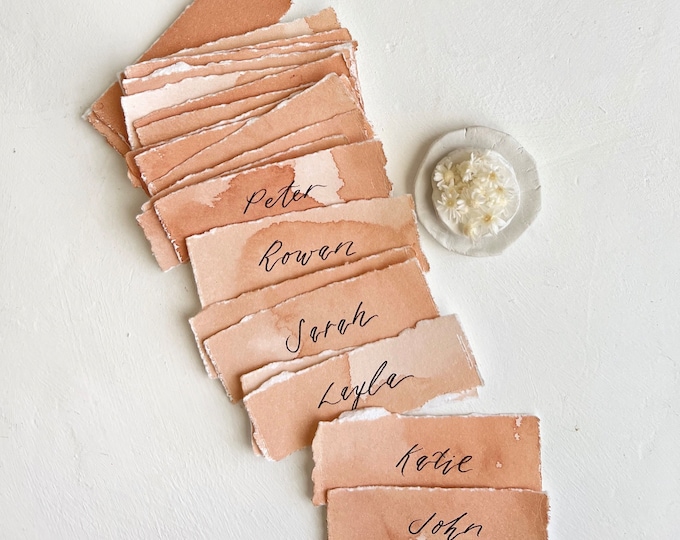 Peter
Rowan
Sarah
Layla
Katie
John